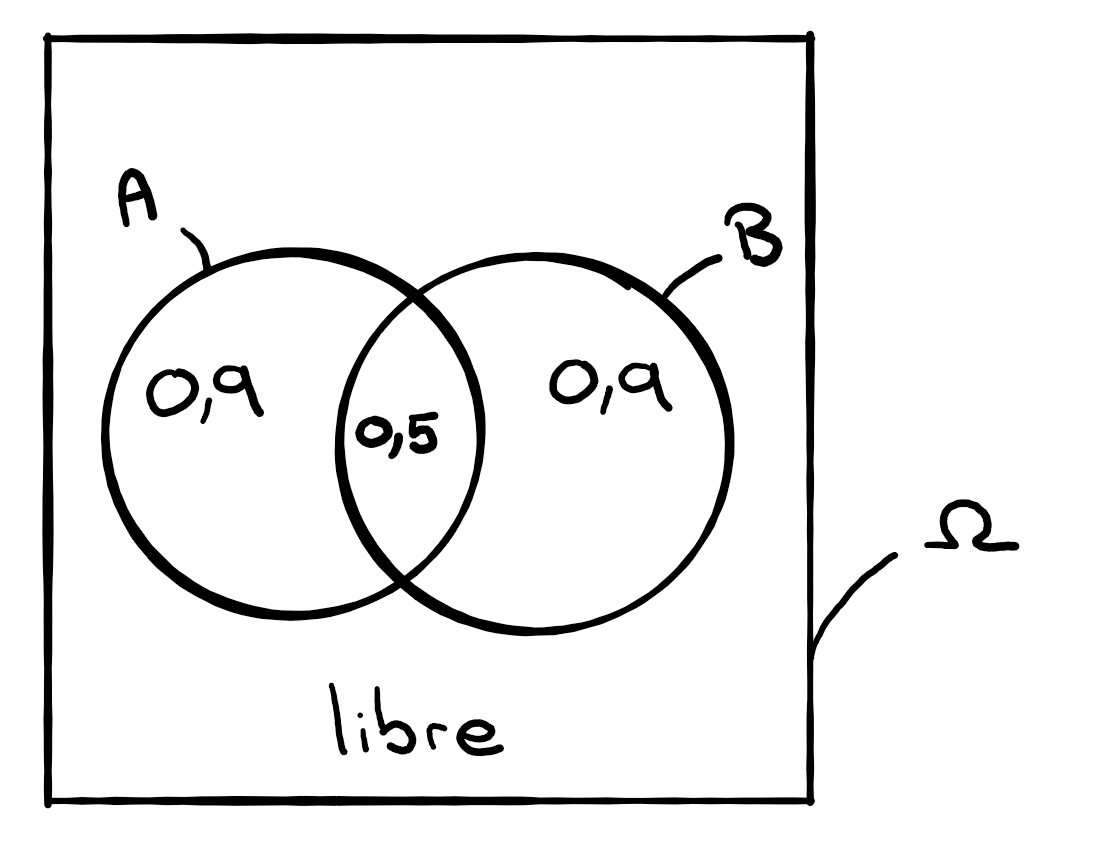 A
B
0,9
0,5
0,9
Ω
libre